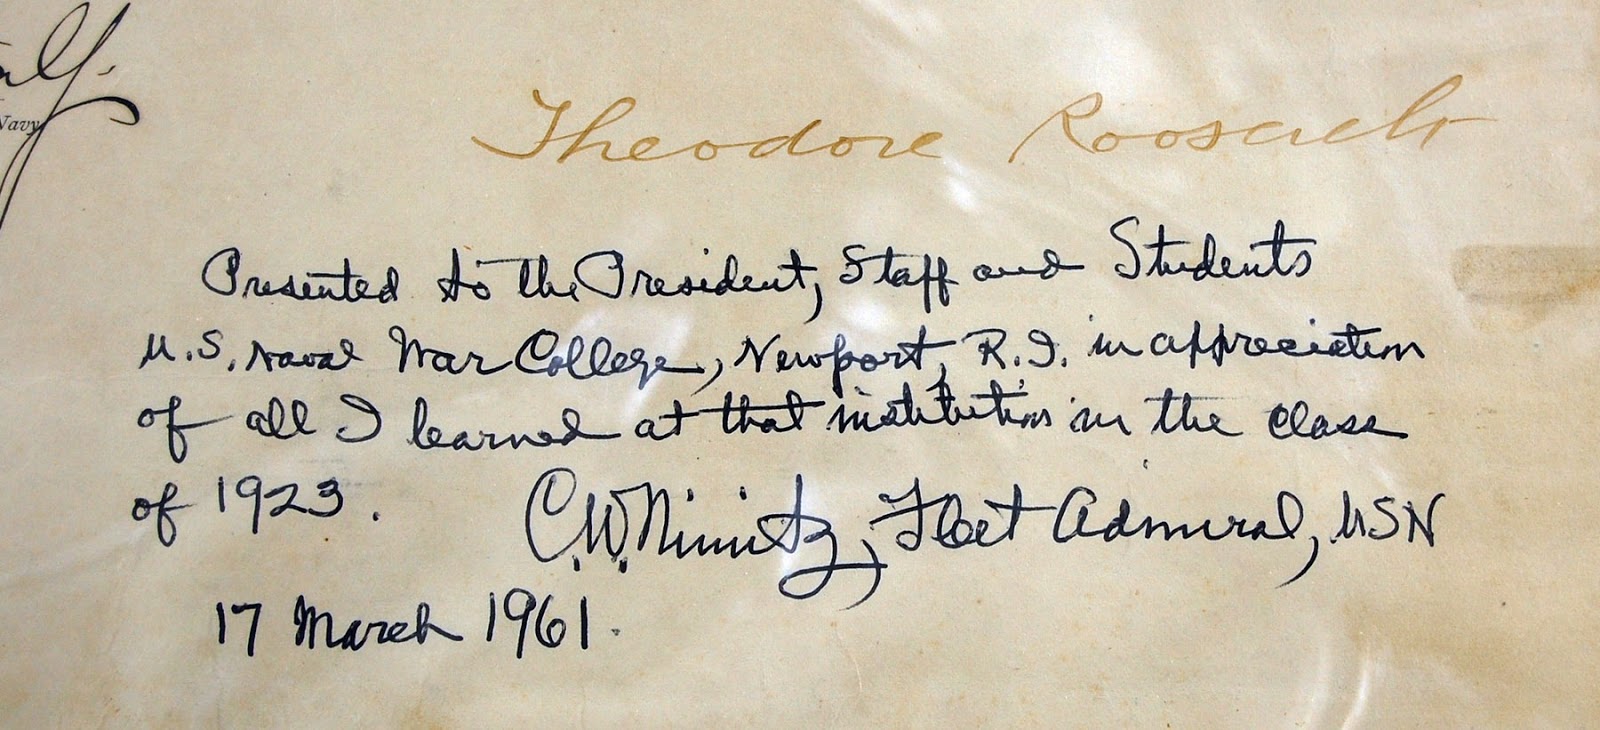 Navy
Theodore Roosevelt
Presented to the President, Staff and Students
U.S. Naval War College, Newport, R.I. in appreciation
of all I learned at that institution in the class
of 1923. C.W. Nimitz, Fleet Admiral, USN
17 March 1961.